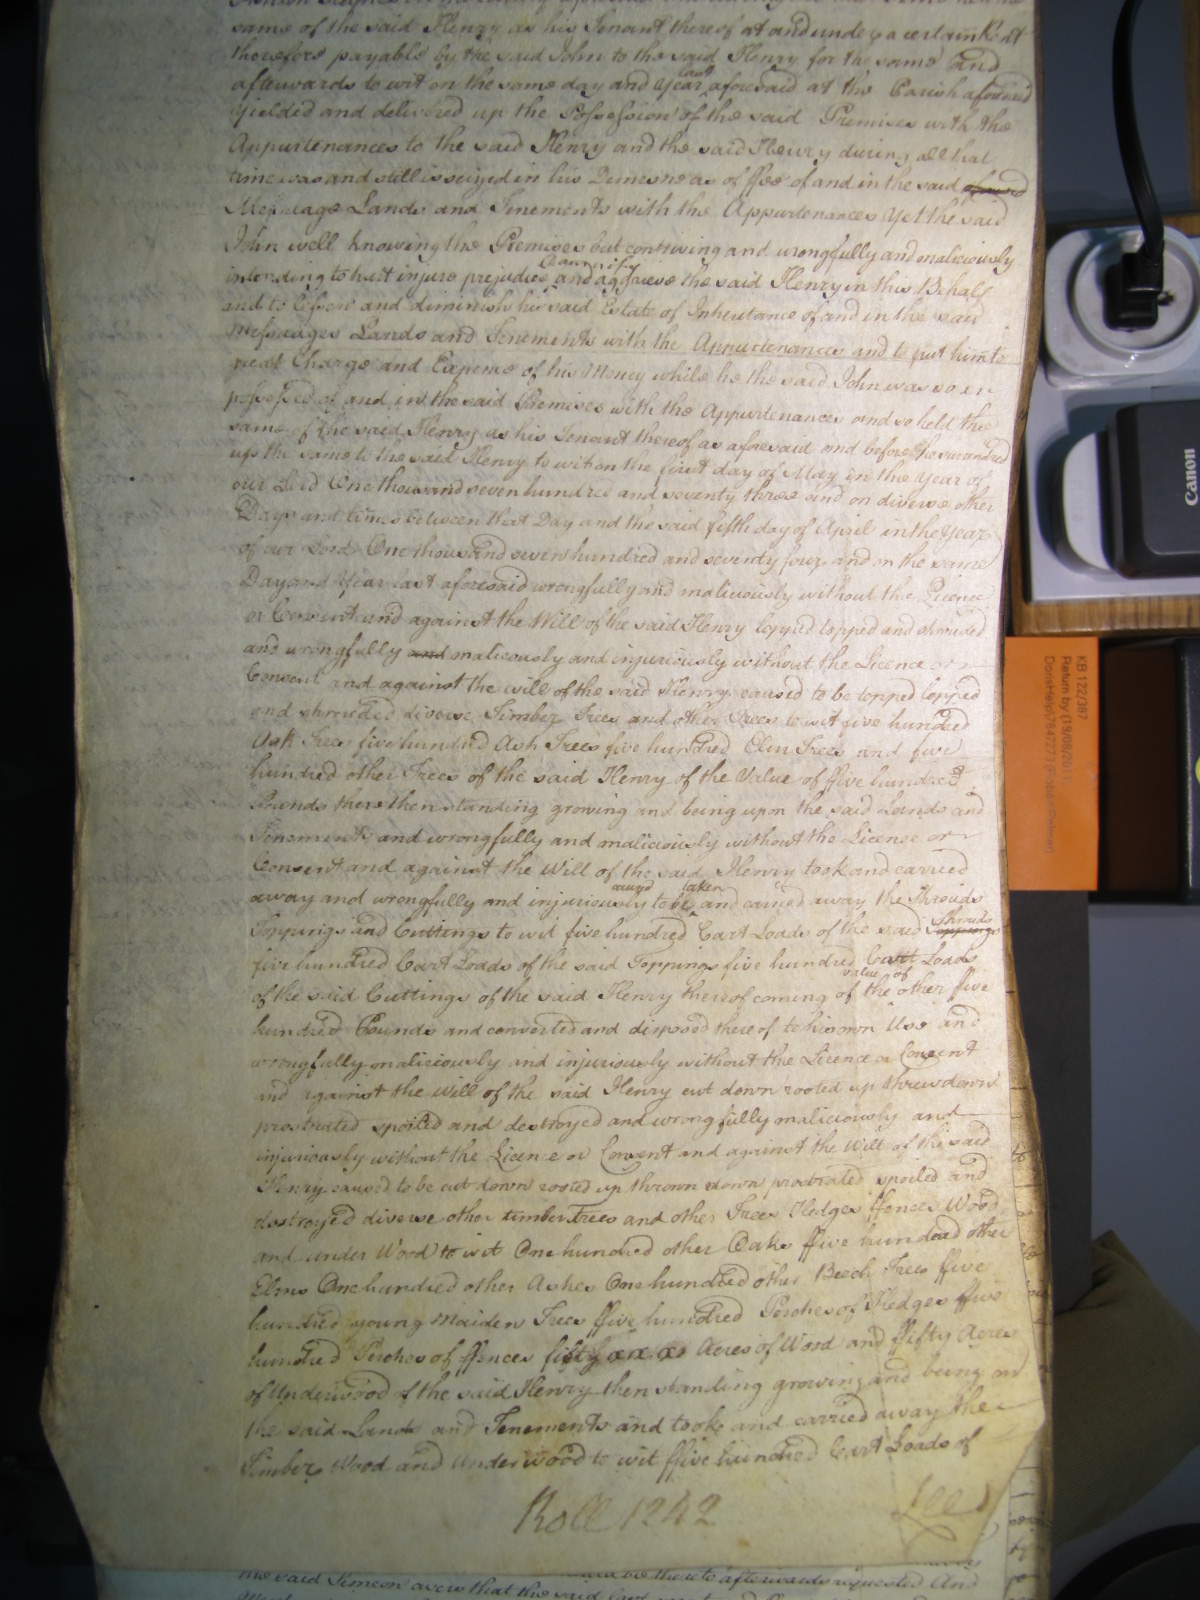 same of the said Henry as his Tenant thereof at and under a certain Rent
therefore payable by the said John to the said Henry for the same and
afterwards to wit on the same day and Year last aforesaid at the Parish aforesaid
yielded and delivered up the Possession of the said Premises with the
Appurtenances to the said Henry and the said Henry during all that
time was and still is seized in his Demesne as of ffee of and in the said
Messuage Lands and Tenements with the Appurtenances Yet the said
John well knowing the Premises but contriving and wrongfully and maliciously
intending to hurt injure prejudice damnify and aggrieve the said Henry in this Behalf
and to lessen and diminish his said Estate of Inheritance of and in the said
Messuages Lands and Tenements with the Appurtenances and to put him to
great Charge and Expense of his Money while he the said John was so
possessed of and in the said Premises with the Appurtenances and so held the
same of the said Henry as his Tenant thereof as aforesaid and before he surrendred
up the same to the said Henry to wit on the first day of May in the Year of
our Lord One thousand seven hundred and seventy three and on diverse other
Days and times between that Day and the said fifth day of April in the Year
of our Lord One thousand seven hundred and seventy four and on the same
Day and Year last aforesaid wrongfully and maliciously without the Licence
or Consent and against the Will of the said Henry topped lopped and shrouded
and wrongfully and maliciously and injuriously without the Licence or
Consent and against the will of the said Henry caused to be topped lopped
and shrouded diverse Timber Trees and other Trees to wit five hundred
Oak Trees five hundred Ash Trees five hundred Elm Trees and five
hundred other Trees of the said Henry of the Value of ffive hundred
Pounds there then standing growing and being upon the said Lands and
Tenements and wrongfully and maliciously without the Licence or
Consent and against the Will of the said Henry took and carried
away and wrongfully and injuriously caused to be taken and carried away the Shrouds
Toppings and Cuttings to wit five hundred Cart Loads of the said Toppings shrouds
five hundred Cart Loads of the said Toppings five hundred Cart Loads
of the said Cuttings of the said Henry thereof coming of the value of other five
hundred Pounds and converted and disposed thereof to his own Use and
wrongfully maliciously and injuriously without the Licence or Consent
and against the will of the said Henry cut down rooted up threw down
prostrated spoiled and destroyed and wrongfully maliciously and
injuriously without the Licence or Consent and against the Will of the said
Henry caused to be cut down rooted up thrown down prostrated spoiled and
destroyed diverse other timber trees and other Trees Hedges ffences Wood
and under Wood to wit One hundred other Oaks ffive hundred other
Elms One hundred other Ashes One hundred other Beech Trees ffive
hundred young Maiden Trees ffive hundred Perches of Hedges ffive
hundred Perches of ffences fifty Acres of Wood and ffifty Acres
of Underwood of the said Henry then standing growing and being on
the said Lands and Tenements and took and carried away the
Timber Wood and Underwood to wit ffive hundred Cart Loads of
Roll 1242
Lee
the said Simeon avers that the said
thereto afterwards requested And
Canon
KB 122/387
Return by (19/08/2011)